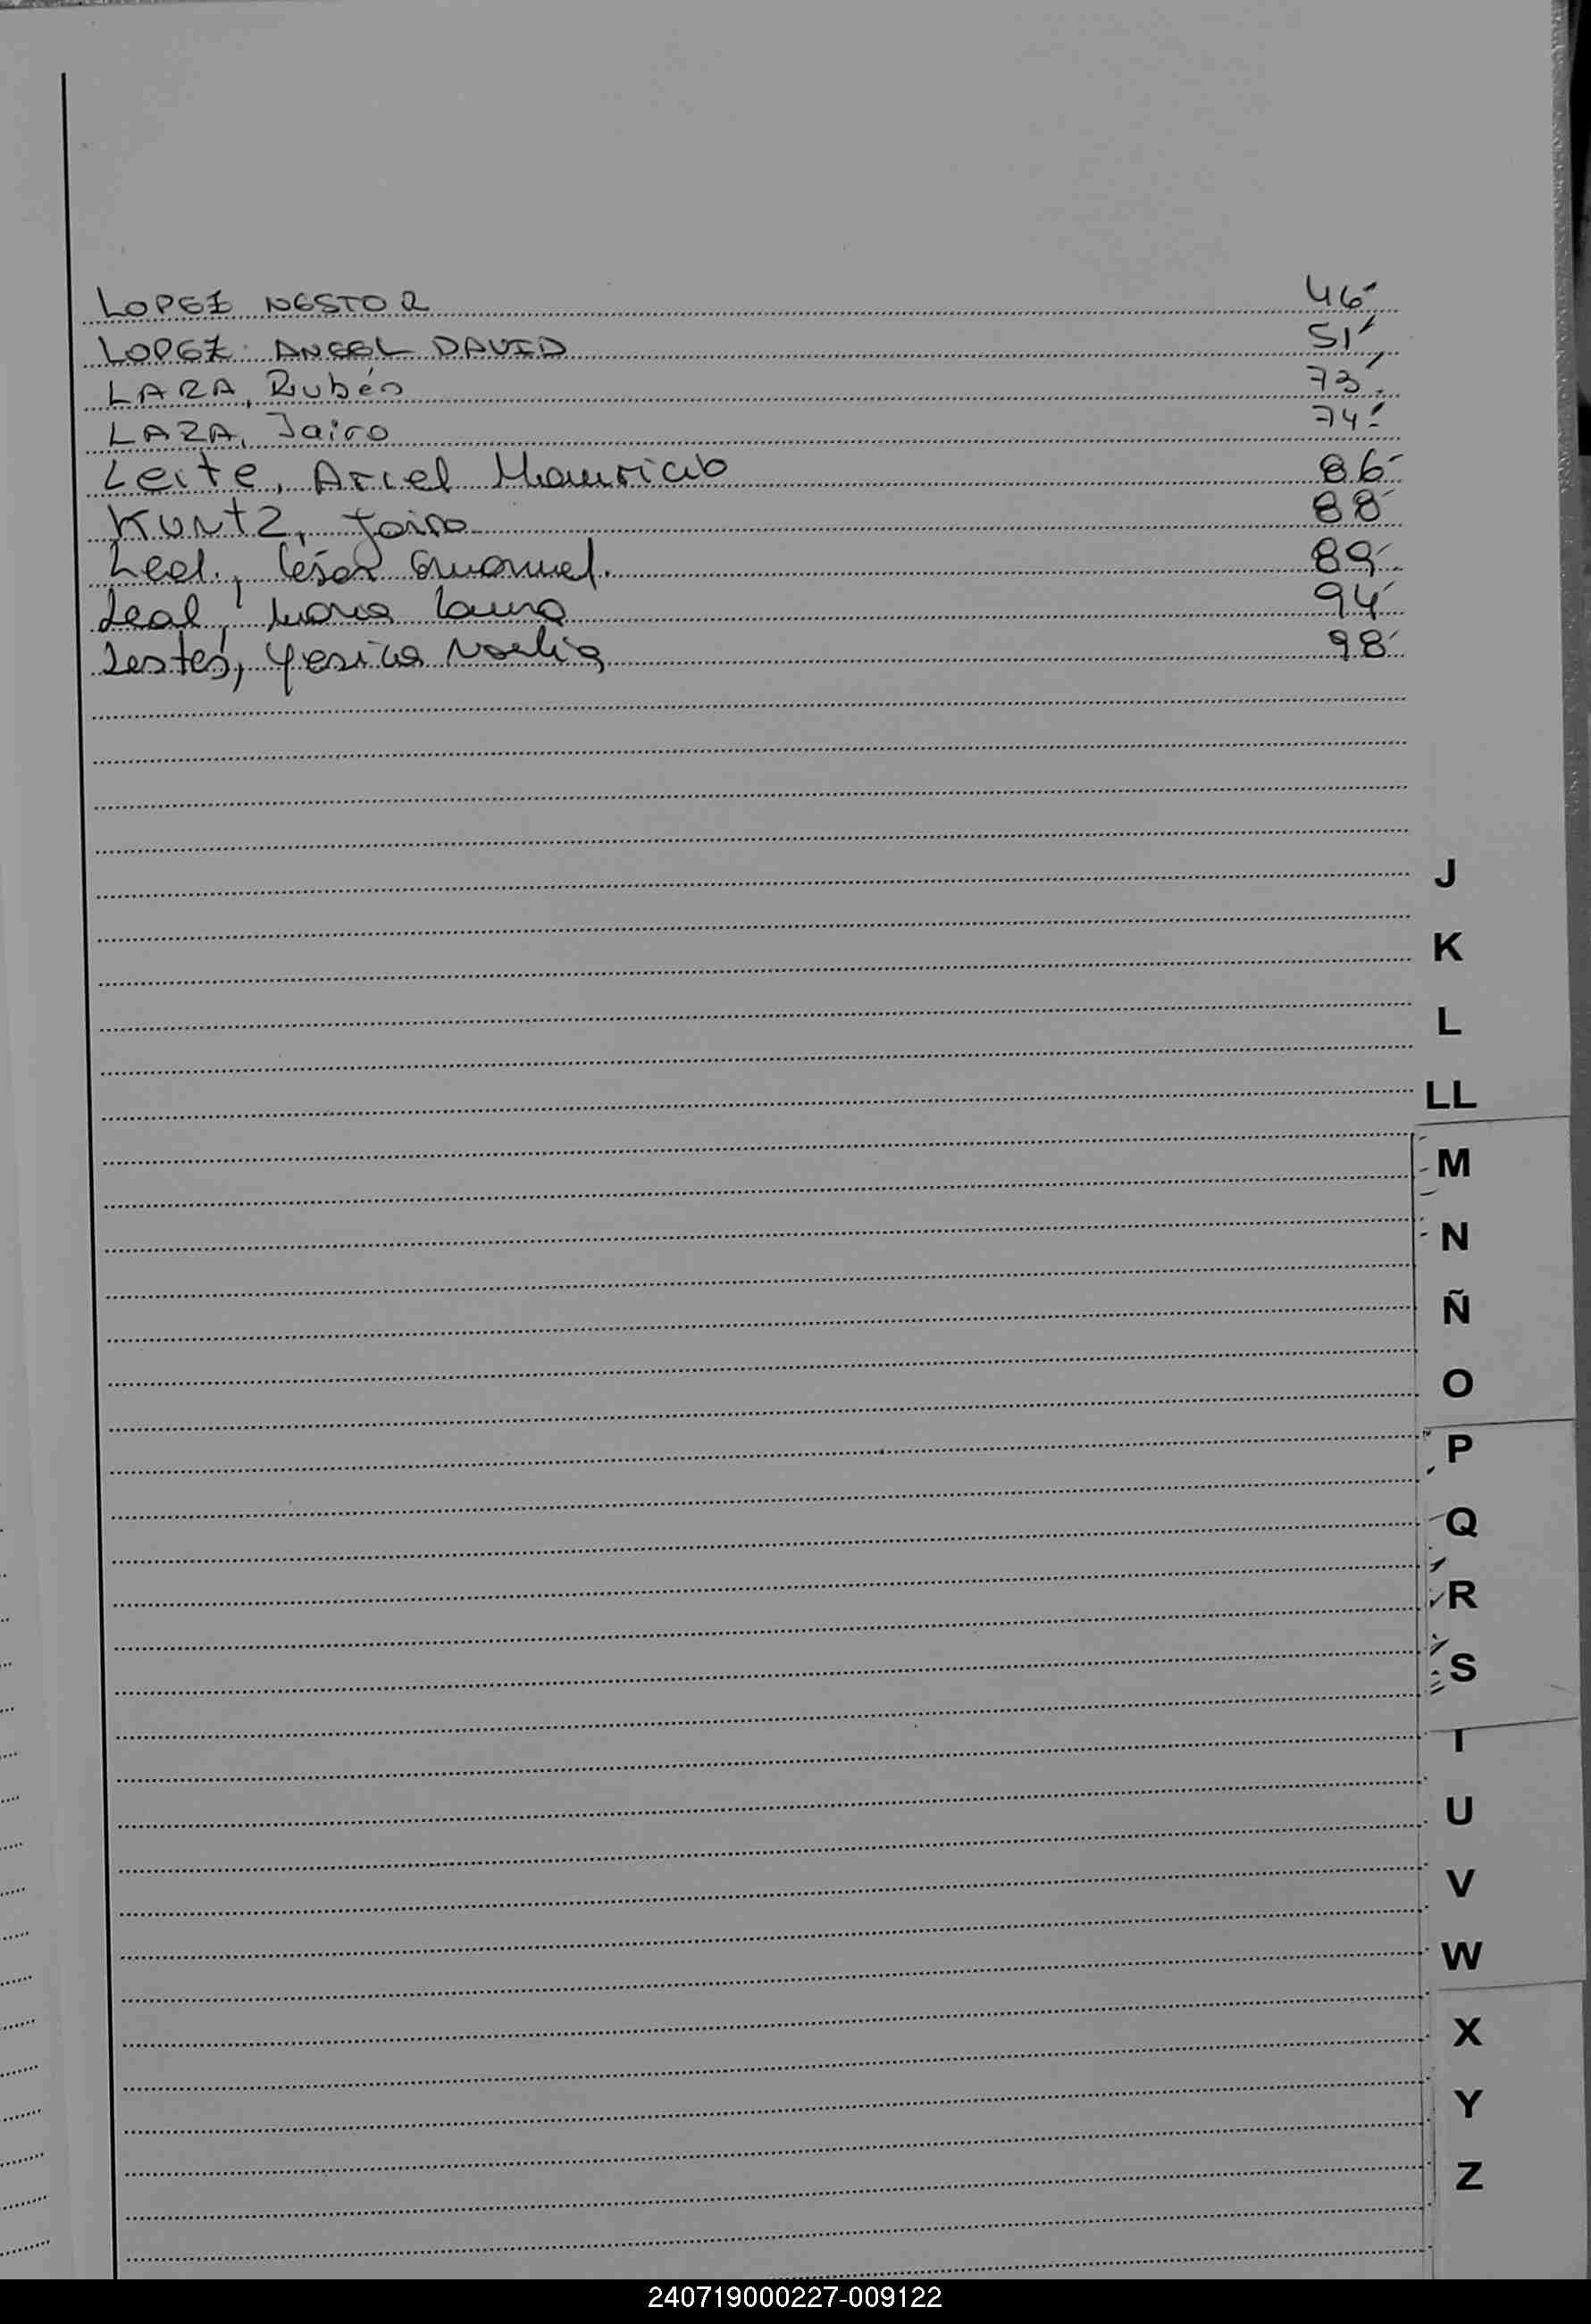 LOPEZ NESTOR 46
LOPEZ ANGEL DAVID 51
LARA, Rubén 73
LARA, Jairo 74
Leite, Ariel Mauricio 86
Kuntz, Jairo 88
Leal, César Emanuel. 89
Leal, Maria Laura 94
Yesica Noelia 98
J
K
L
LL
M
N
Ñ
O
P
Q
R
S
T
U
V
W
X
Y
Z
240719000227-009122